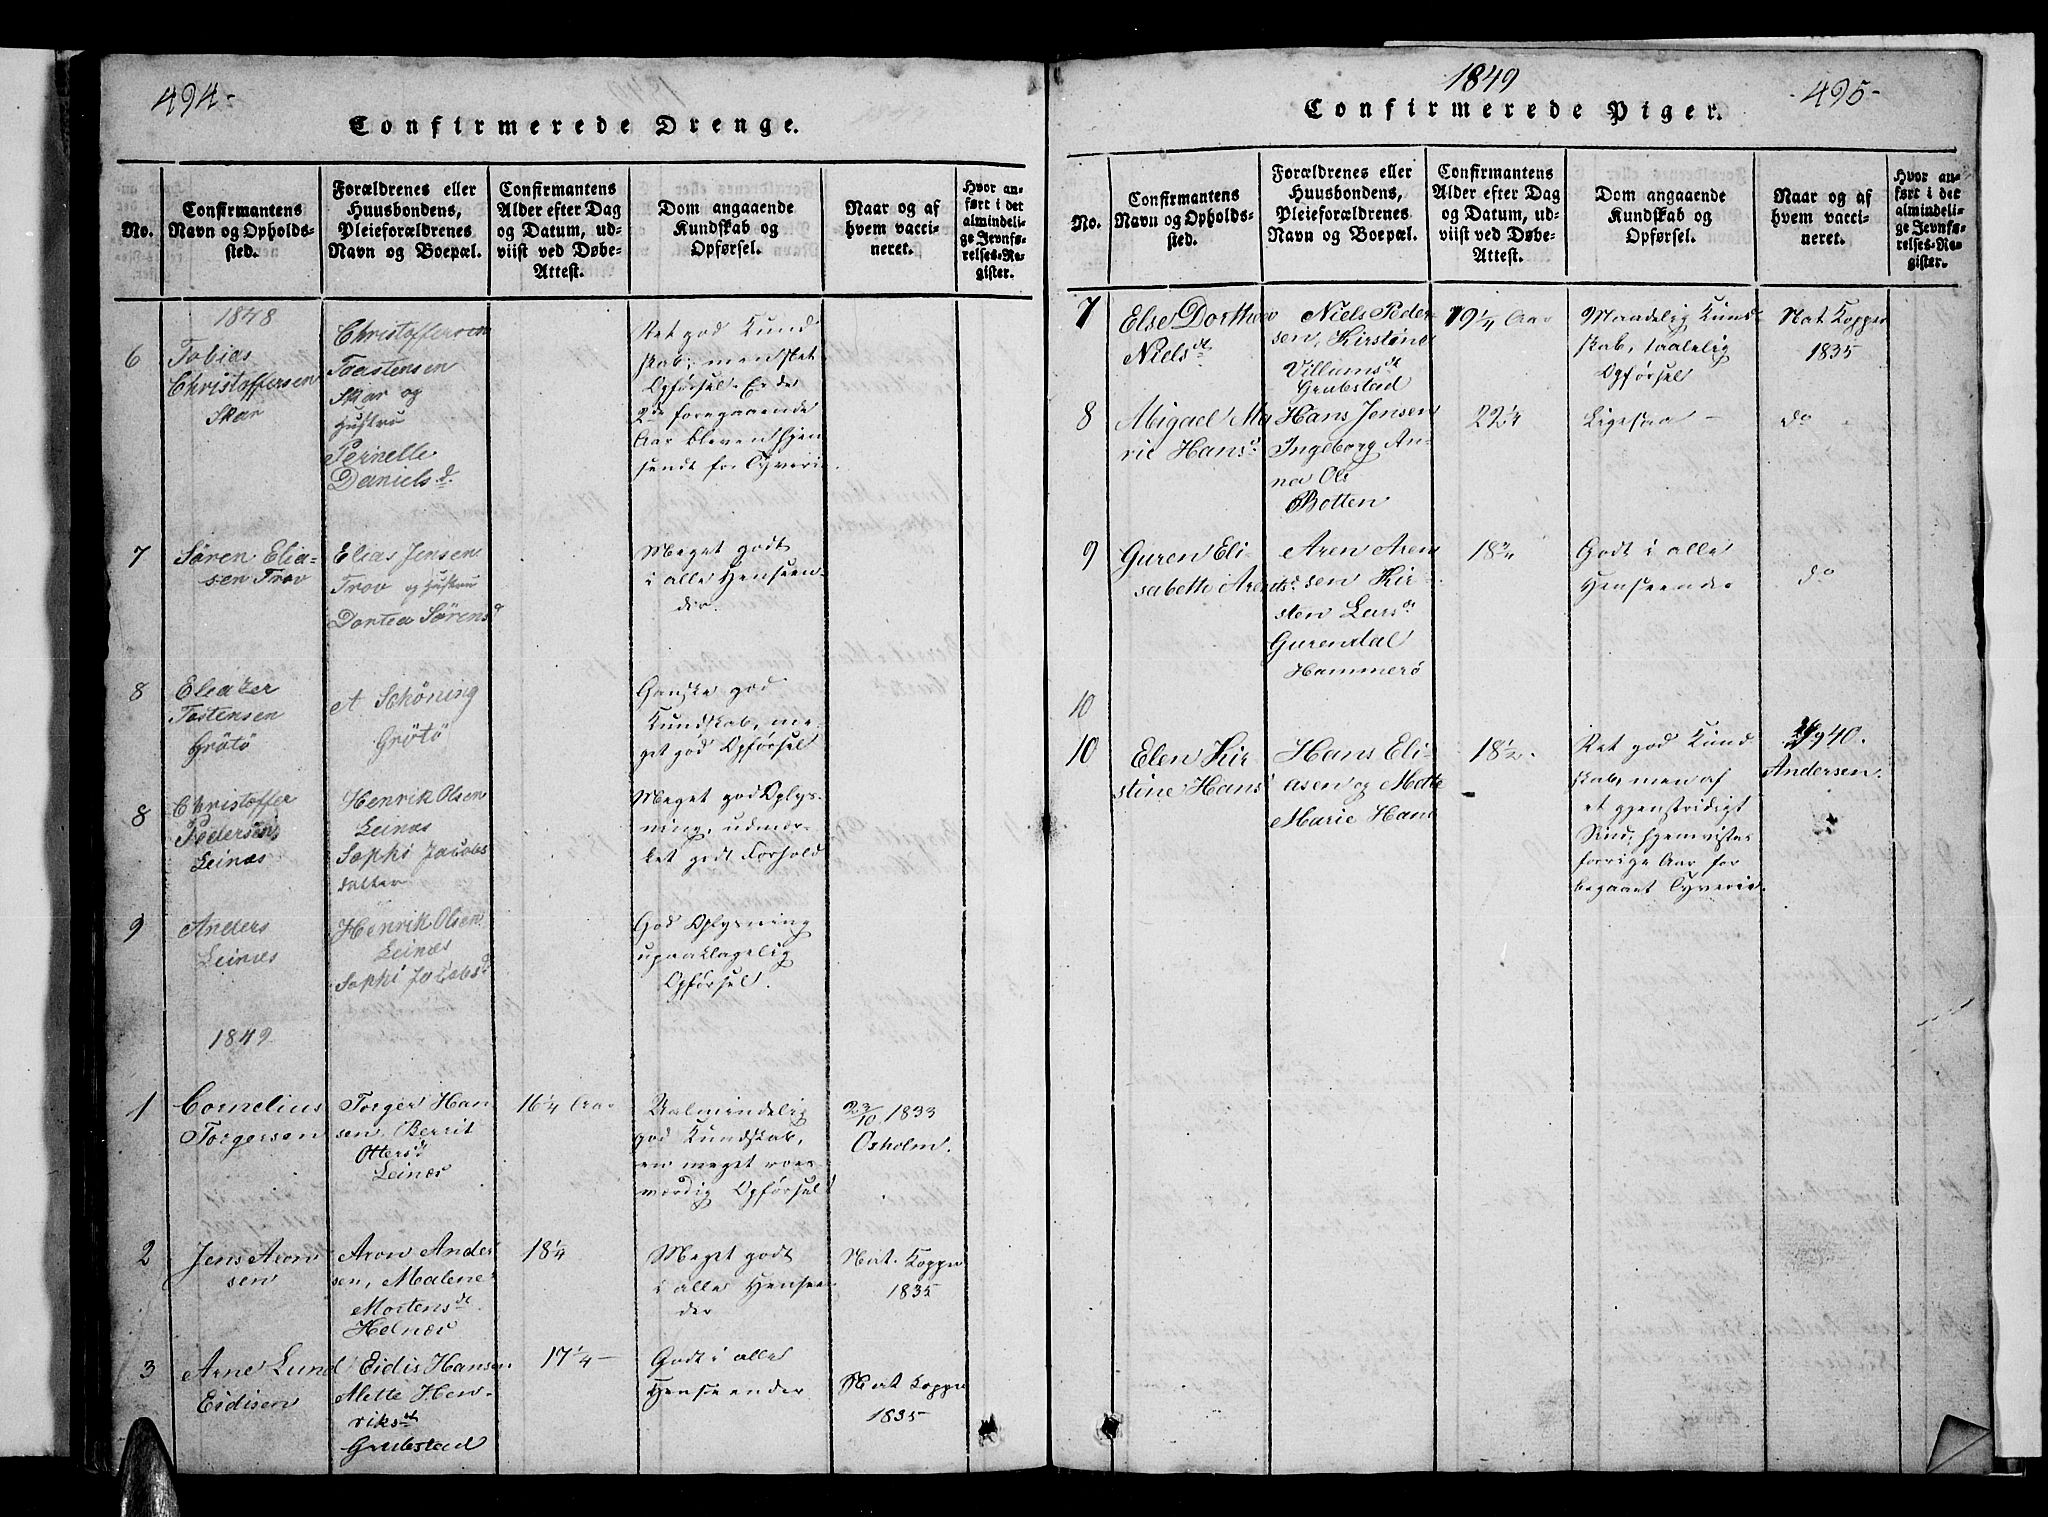 494-
Confirmerede Drenge.
No.
Confirmantens
Navn og Opholds-
sted.
Forældrenes eller
Huusbondens,
Pleieforældrenes
Navn og Boepæl.
Confirmantens
Alder efter Dag
og Datum, ud-
viist ved Døbe-
Attest.
Dom angaaende
Kundskab og
Opførsel.
Naar og af
hvem vacci-
neret.
Hvor an-
ført i det
almindeli-
ge Jevnfø-
relses-Re-
gister.
1848
6
Tobias
Christoffersen
Skar
Christoffersen
Taastensen
Skar og
Hustru
Pernelle
Daniels d.
Ret god Kund
skab; men sket
Opførsel. Er de
2de foregaaende
Aar bleven hjem
sendt for Tyveri
7
Søren Elia-
sen Trov
Elias Jensen
Trov og Hustru
Dortea Sørens d
Meget godt
i alle Henseen-
der.
8
Eliazer
Tostensen
Grøtø
A Schöning
Grøtø
Ganske god
Kundskab, me-
get god Opførsel
8
Christoffer
Pedersen
Leinæs
Henrik Olsen
Leinæs
Sophi Jacobs
datter
Meget god Oplys-
ning, udmær-
ket godt Forhold
9
Anders
Leinæs
Henrik Olsen
Leinæs
Sophi Jacobs d
God Oplysning
upaaklagelig
Opførsel.
1849
1
Cornelius
Torgersen
Torger Han
sen, Berrit
Otters d
Leinæs
16 1/4 Aar
Ualmindelig
god Kundskab,
en meget roes
værdig Opførsel
23/10 1833
Oxholm.
2
Jens Aron
sen
Aron Ander
sen, Malene
Mortens dt
Helnæs
18 1/4
Meget godt
i alle Henseen
der
Nat. Kopper
1835
3
Arne Lund
Eidisen
Eidis Hansen
Alette Hen-
riks dt
Grubstad
17 1/4 -
Godt i alle
Henseender
Nat Kopper
1835
1849
495-
Confirmerede Piger.
No.
Confirmantens
Navn og Opholds-
sted.
Forældrenes eller
Huusbondens,
Pleieforældrenes
Navn og Boepæl.
Confirmantens
Alder efter Dag
og Datum, ud-
viist ved Døbe-
Attest.
Dom angaaende
Kundskab og
Opførsel.
Naar og af
hvem vacci-
neret.
Hvor an-
ført i det
almindeli-
ge Jevnfø-
relses-Re-
gister.
7
Else Dorthea
Niels dt
Niels Peder-
sen, Kirstine
Villums dt
Grubstad
19 1/4 Aar
Maadelig Kund
skab, taalelig
Opførsel
Nat Kopper
1835
8
Abigael Ma
rie Hans d
Hans Jensen
Ingeborg An-
na Ols
Botten
22 1/4
Ligesaa -
do -
9
Guren Eli-
sabeth Arends d
Aren Aren
sen Kir-
sten Lars dt
Gurendal
Hammerø
18 3/4
Godt i alle
Henseender
do
10
10
Elen Kir-
stine Hans d
Hans Eli-
asen og Mette
Marie Hans
18 1/2.
Ret god Kund
skab, men af
et gjenstridigt
Sind; hjemvistes
forrige Aar for
begaaet Tyveri.
40.
Andersen.